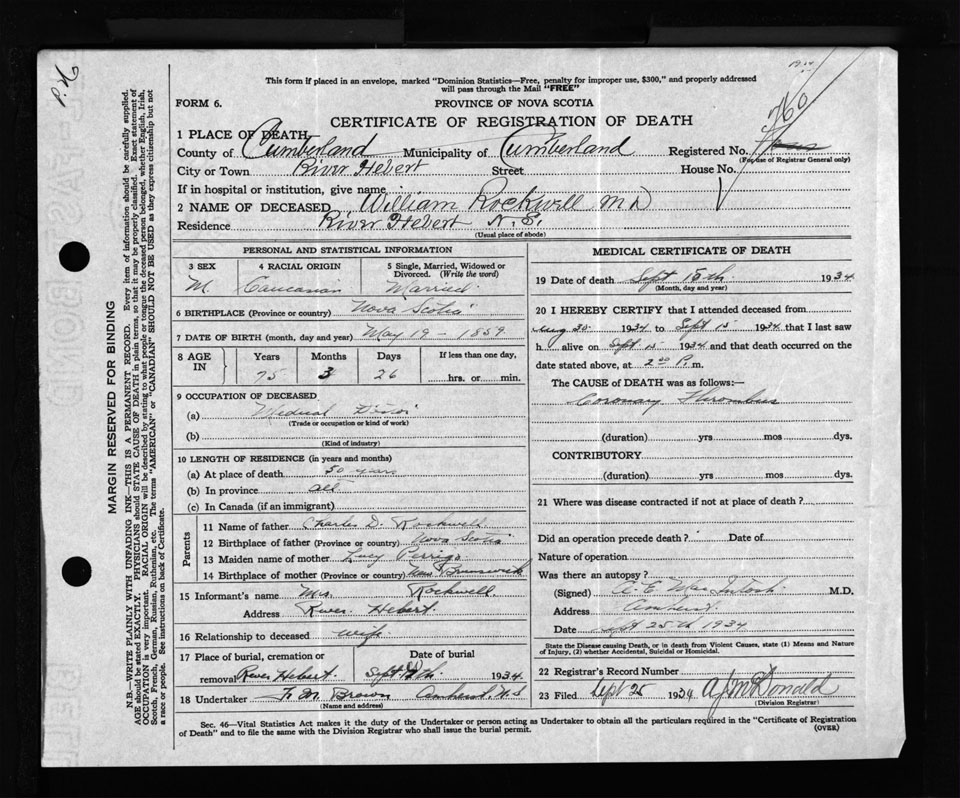 This form if placed in an envelope, marked "Dominion Statistics—Free, penalty for improper use, $300," and properly addressed
will pass through the Mail "FREE"
FORM 6.
PROVINCE OF NOVA SCOTIA
CERTIFICATE OF REGISTRATION OF DEATH
760
1 PLACE OF DEATH,
County of Cumberland Municipality of Cumberland Registered No.
(For use of Registrar General only)
City or Town River Hebert Street House No.
If in hospital or institution, give name
2 NAME OF DECEASED William Rockwell M D
Residence River Hebert N. S.
(Usual place of abode)
PERSONAL AND STATISTICAL INFORMATION
3 SEX 4 RACIAL ORIGIN 5 Single, Married, Widowed or
Divorced. (Write the word)
M. Caucasian Married
6 BIRTHPLACE (Province or country) Nova Scotia
7 DATE OF BIRTH (month, day and year) May 19 - 1859
8 AGE IN Years Months Days If less than one day,
75 3 26 hrs. or min.
9 OCCUPATION OF DECEASED
(a) Medical Doctor
(Trade or occupation or kind of work)
(b)
(Kind of industry)
10 LENGTH OF RESIDENCE (in years and months)
(a) At place of death 50 years
(b) In province all
(c) In Canada (if an immigrant)
Parents
11 Name of father Charles D. Rockwell
12 Birthplace of father (Province or country) Nova Scotia
13 Maiden name of mother Lucy Perrigo
14 Birthplace of mother (Province or country) New Brunswick
15 Informant's name Mrs. Rockwell
Address River Hebert
16 Relationship to deceased wife
17 Place of burial, cremation or Date of burial
removal River Hebert Sept 1934
18 Undertaker F. M. Brown Amherst N S
(Name and address)
MEDICAL CERTIFICATE OF DEATH
19 Date of death Sept 15th 1934
(Month, day and year)
20 I HEREBY CERTIFY that I attended deceased from
Aug 30 1934 to Sept 15 1934 that I last saw
h alive on Sept 15 1934 and that death occurred on the
date stated above, at 2.00 P. m.
The CAUSE of DEATH was as follows:—
Coronary Thrombus
(duration) yrs mos dys.
CONTRIBUTORY
(duration) yrs mos dys.
21 Where was disease contracted if not at place of death?
Did an operation precede death? Date of
Nature of operation
Was there an autopsy?
(Signed) A. E. MacIntosh M.D.
Address Amherst.
Date Sept 25th 1934
State the Disease causing Death, or in death from Violent Causes, state (1) Means and Nature
of Injury, (2) whether Accidental, Suicidal or Homicidal.
22 Registrar's Record Number
23 Filed Sept 25 1934 A J McDonald
(Division Registrar)
Sec. 46—Vital Statistics Act makes it the duty of the Undertaker or person acting as Undertaker to obtain all the particulars required in the "Certificate of Registration
of Death" and to file the same with the Division Registrar who shall issue the burial permit.
(OVER)
MARGIN RESERVED FOR BINDING
N.B.—WRITE PLAINLY WITH UNFADING INK—THIS IS A PERMANENT RECORD. Every item of information should be carefully supplied.
AGE should be stated EXACTLY. PHYSICIANS should STATE CAUSE OF DEATH in plain terms, so that it may be properly classified. Exact statement of
OCCUPATION is very important. RACIAL ORIGIN will be described by stating to what people or tongue the deceased person belonged, whether English, Irish,
Scotch, French, German, Russian, Ruthenian, etc. The terms "AMERICAN" or "CANADIAN" SHOULD NOT BE USED as they express citizenship but not
a race or people. See instructions on back of Certificate.